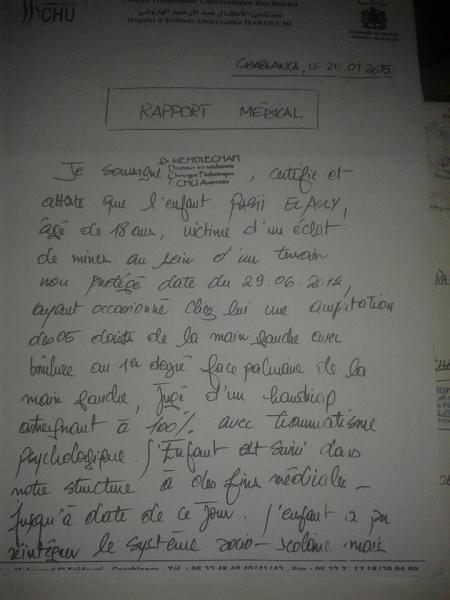 CHU
Centre Hospitalier Universitaire Ibn Rochd
مستشفى الأطفال عبد الرحيم الهاروشي
Hôpital d'Enfants Abderrahim HAROUCHI
CASABLANCA, LE 2 .09.2015
RAPPORT MEDICAL
Je soussigné Dr MEHDI ECHAFI , certifie et
Docteur en médecine
Chirurgie Pédiatrique
CHU Averroès
atteste que l'enfant RABII EL
âgé de 18 ans, victime d'un éclat
de mines au sein d'un terrain
non protégé date du 29.06.2012,
ayant occasionné chez lui une amputation
des 05 doigts de la main gauche avec
brûlure au 1er degré face palmaire de la
main gauche, jugé d'un handicap
astreignant à 100% avec traumatisme
psychologique. l'Enfant est suivi dans
notre structure à des fins médicales
jusqu'à date de ce jour. l'enfant a pu
réintégrer le système socio-scolaire mais
Mohamed El Faidouzi Casablanca - Tél. : 05 22 48 40 40/41/42 - Fax :